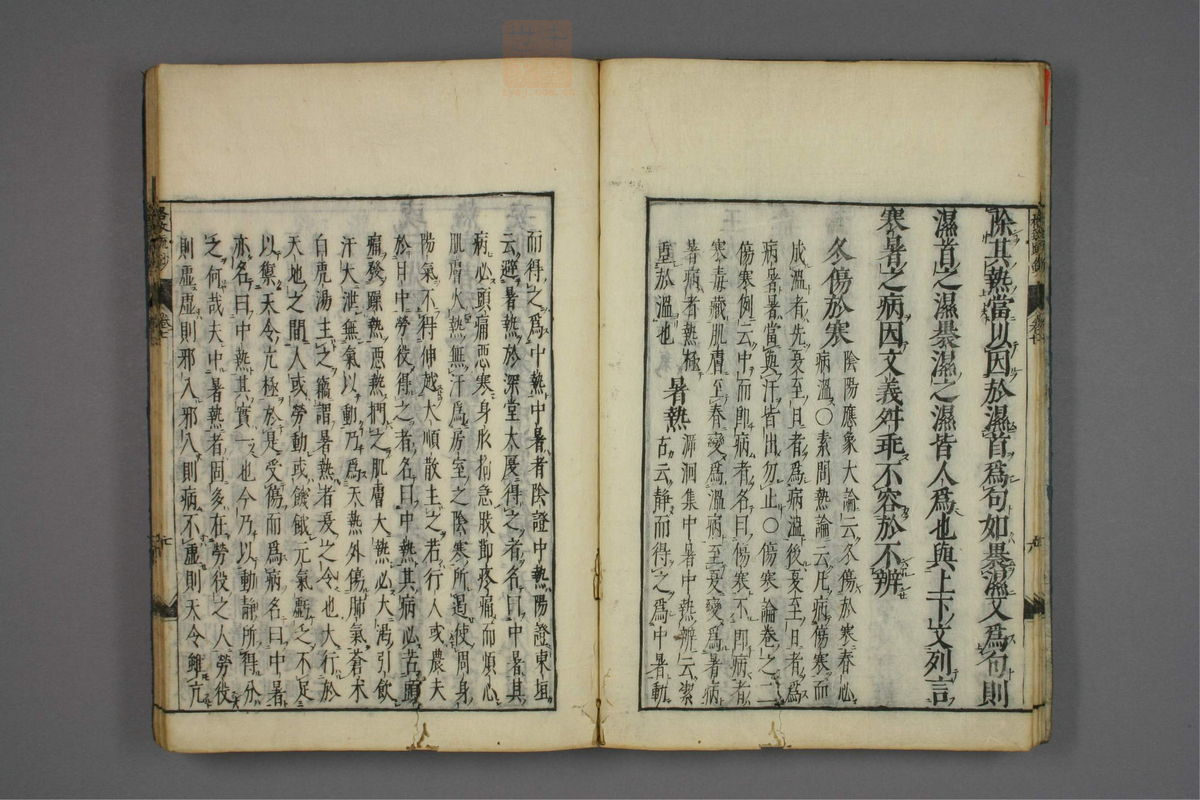 除其熱當以因於濕首爲句如暴濕文爲句則
濕首之濕暴濕之濕皆人爲也與上下文列言
寒暑之病因文義舛乖不容於不辨
冬傷於寒
陰陽應象大論云冬傷於寒春必
病溫〇素問熱論云凡病傷寒而
成溫者先夏至日者爲病溫後夏至日者爲
病暑暑當與汗皆出勿止〇傷寒論卷之二
傷寒例云中而即病者名曰傷寒不即病者
寒毒藏肌膚至春變爲溫病至夏變爲暑病
暑病者熱極
重於溫也
暑熱
溯洄集中暑中熱辨云潔
古云静而得之爲中暑動
而得之爲中熱中暑者陰證中熱陽證東垣
云避暑熱於深堂大廈得之者名曰中暑其
病必頭痛惡寒身形拘急肢節疼痛而煩心
肌膚火熱無汗爲房室之陰寒所遏使周身
陽氣不得伸越大順散主之若行人或農夫
於日中勞役得之者名曰中熱其病必苦頭
痛發躁熱惡熱捫之肌膚大熱必大渴引飲
汗大泄無氣以動乃爲天熱外傷肺氣蒼朮
白虎湯主之竊謂暑熱者夏之令也大行於
天地之間人或勞動或饑餓元氣虧乏不足
以禦天令亢極於是受傷而爲病名曰中暑
亦名曰中熱其實一也今乃以動靜所得分
之何哉夫中暑熱者固多在勞役之人勞役
則虛虛則邪入邪入則病不虛則天令雖亢